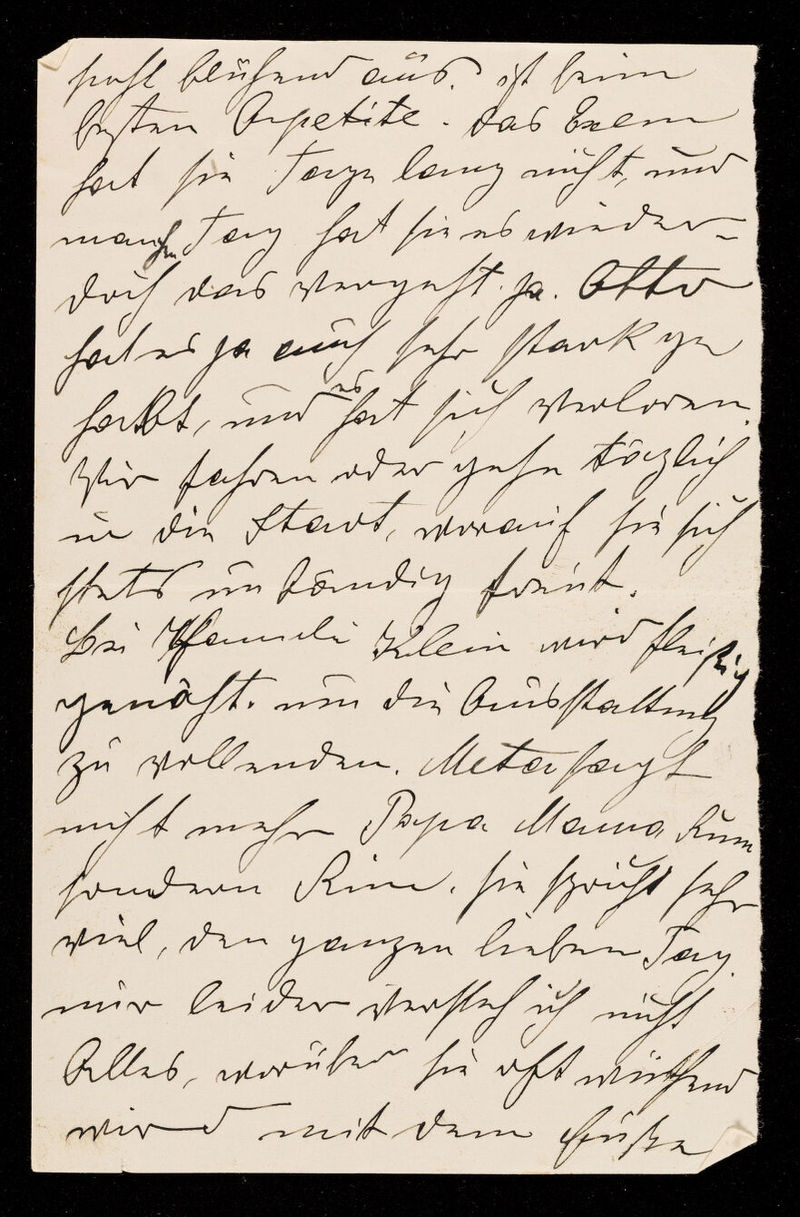 sieht blühend aus. ist beim
besten Apetite. das Exem
hat sie Tage lang nicht, und
manchen Tag hat sie es wieder-
doch das vergeht ja. Otto
hat es ja auch sehr stark ge
habt, und es hat sich verloren.
Wir fahren oder gehn täglich
in die Stadt, worauf sie sich
stets unbändig freut.
Bei Famili Klein wird fleißig
genäht. um die Ausstattung
zu vollenden. Meta sagt
nicht mehr Papa Mama
sondern sie spricht sehr
viel, den ganzen lieben Tag.
nur leider versteh ich nicht
Alles, worüber sie oft wüthend
wird mit dem Fuße